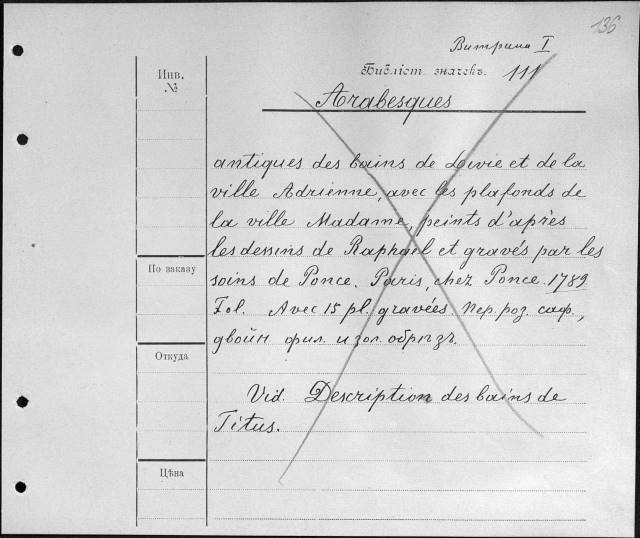 136
Витрина I
Инв.
№
Библіот. значекъ. 111
Arabesques
antiques des bains de Livie et de la
ville Adrienne, avec les plafonds de
la ville Madame, peints d'après
les dessins de Raphael et gravés par les
По заказу
soins de Ponce. Paris, chez Ponce. 1789
Fol. Avec 15 pl. gravées. Пер. роз. саф.,
двойн фил. и зол. обрѣзъ.
Откуда
Vid. Description des bains de
Titus.
Цѣна